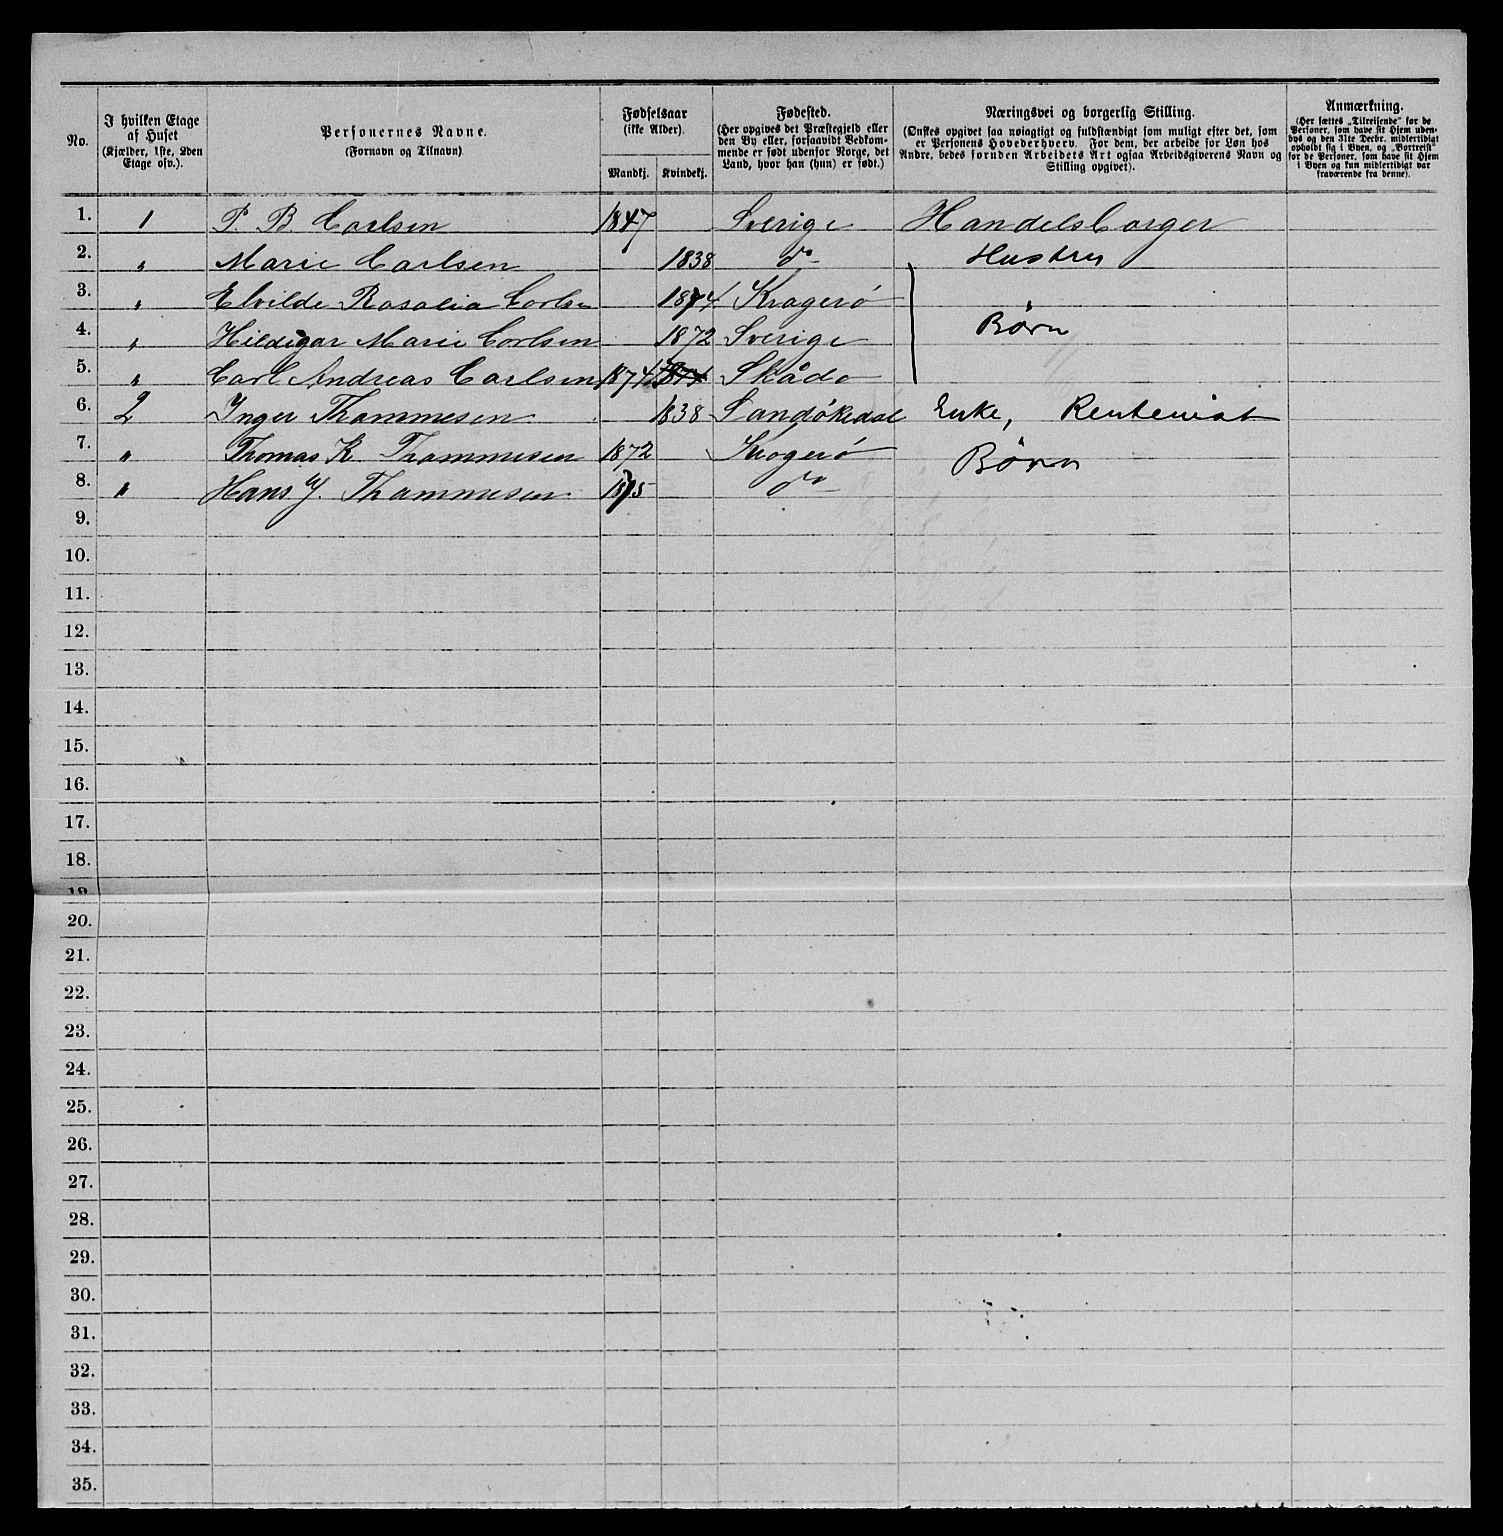 No.
I hvilken Etage af Huset (Kjælder, 1ste, 2den Etage osv.).
Personernes Navne. (Fornavn og Tilnavn)
Fødselsaar (ikke Alder).
Mandkj. Kvindekj.
Fødested. (Her opgives det Præstegjeld eller den By eller, forsaavidt Vedkommende er født udenfor Norge, det Land, hvor han (hun) er født.)
Næringsvei og borgerlig Stilling. (Ønskes opgivet saa nøiagtigt og fuldstændigt som muligt efter det, som er Personens Hovederhverv. For dem, der arbeide for Løn hos Andre, bedes foruden Arbeidets Art ogsaa Arbeidsgiverens Navn og Stilling opgivet).
Anmærkning. (Her sættes „Tilreisende“ for de Personer, som have sit Hjem udenbys og den 31te Decbr. midlertidigt opholdt sig i Byen, og „Bortreist“ for de Personer, som have sit Hjem i Byen og kun midlertidigt var fraværende fra denne).
1. 1 P. B. Carlsen 1847 Sverige Handelsborger
2. " Marie Carlsen 1838 do Hustru
3. " Elvilde Rosalia Carlsen 1874 Kragerø
4. " Hildegar Marie Carlsen 1872 Sverige Børn
5. " Carl Andreas Carlsen 1874 Skådø
6. 2 Inger Thommesen 1838 Sandøkedal Enke, Rentenist
7. " Thomas K. Thommesen 1872 Kragerø Børn
8. " Hans Thommesen 1875 do
9.
10.
11.
12.
13.
14.
15.
16.
17.
18.
19.
20.
21.
22.
23.
24.
25.
26.
27.
28.
29.
30.
31.
32.
33.
34.
35.